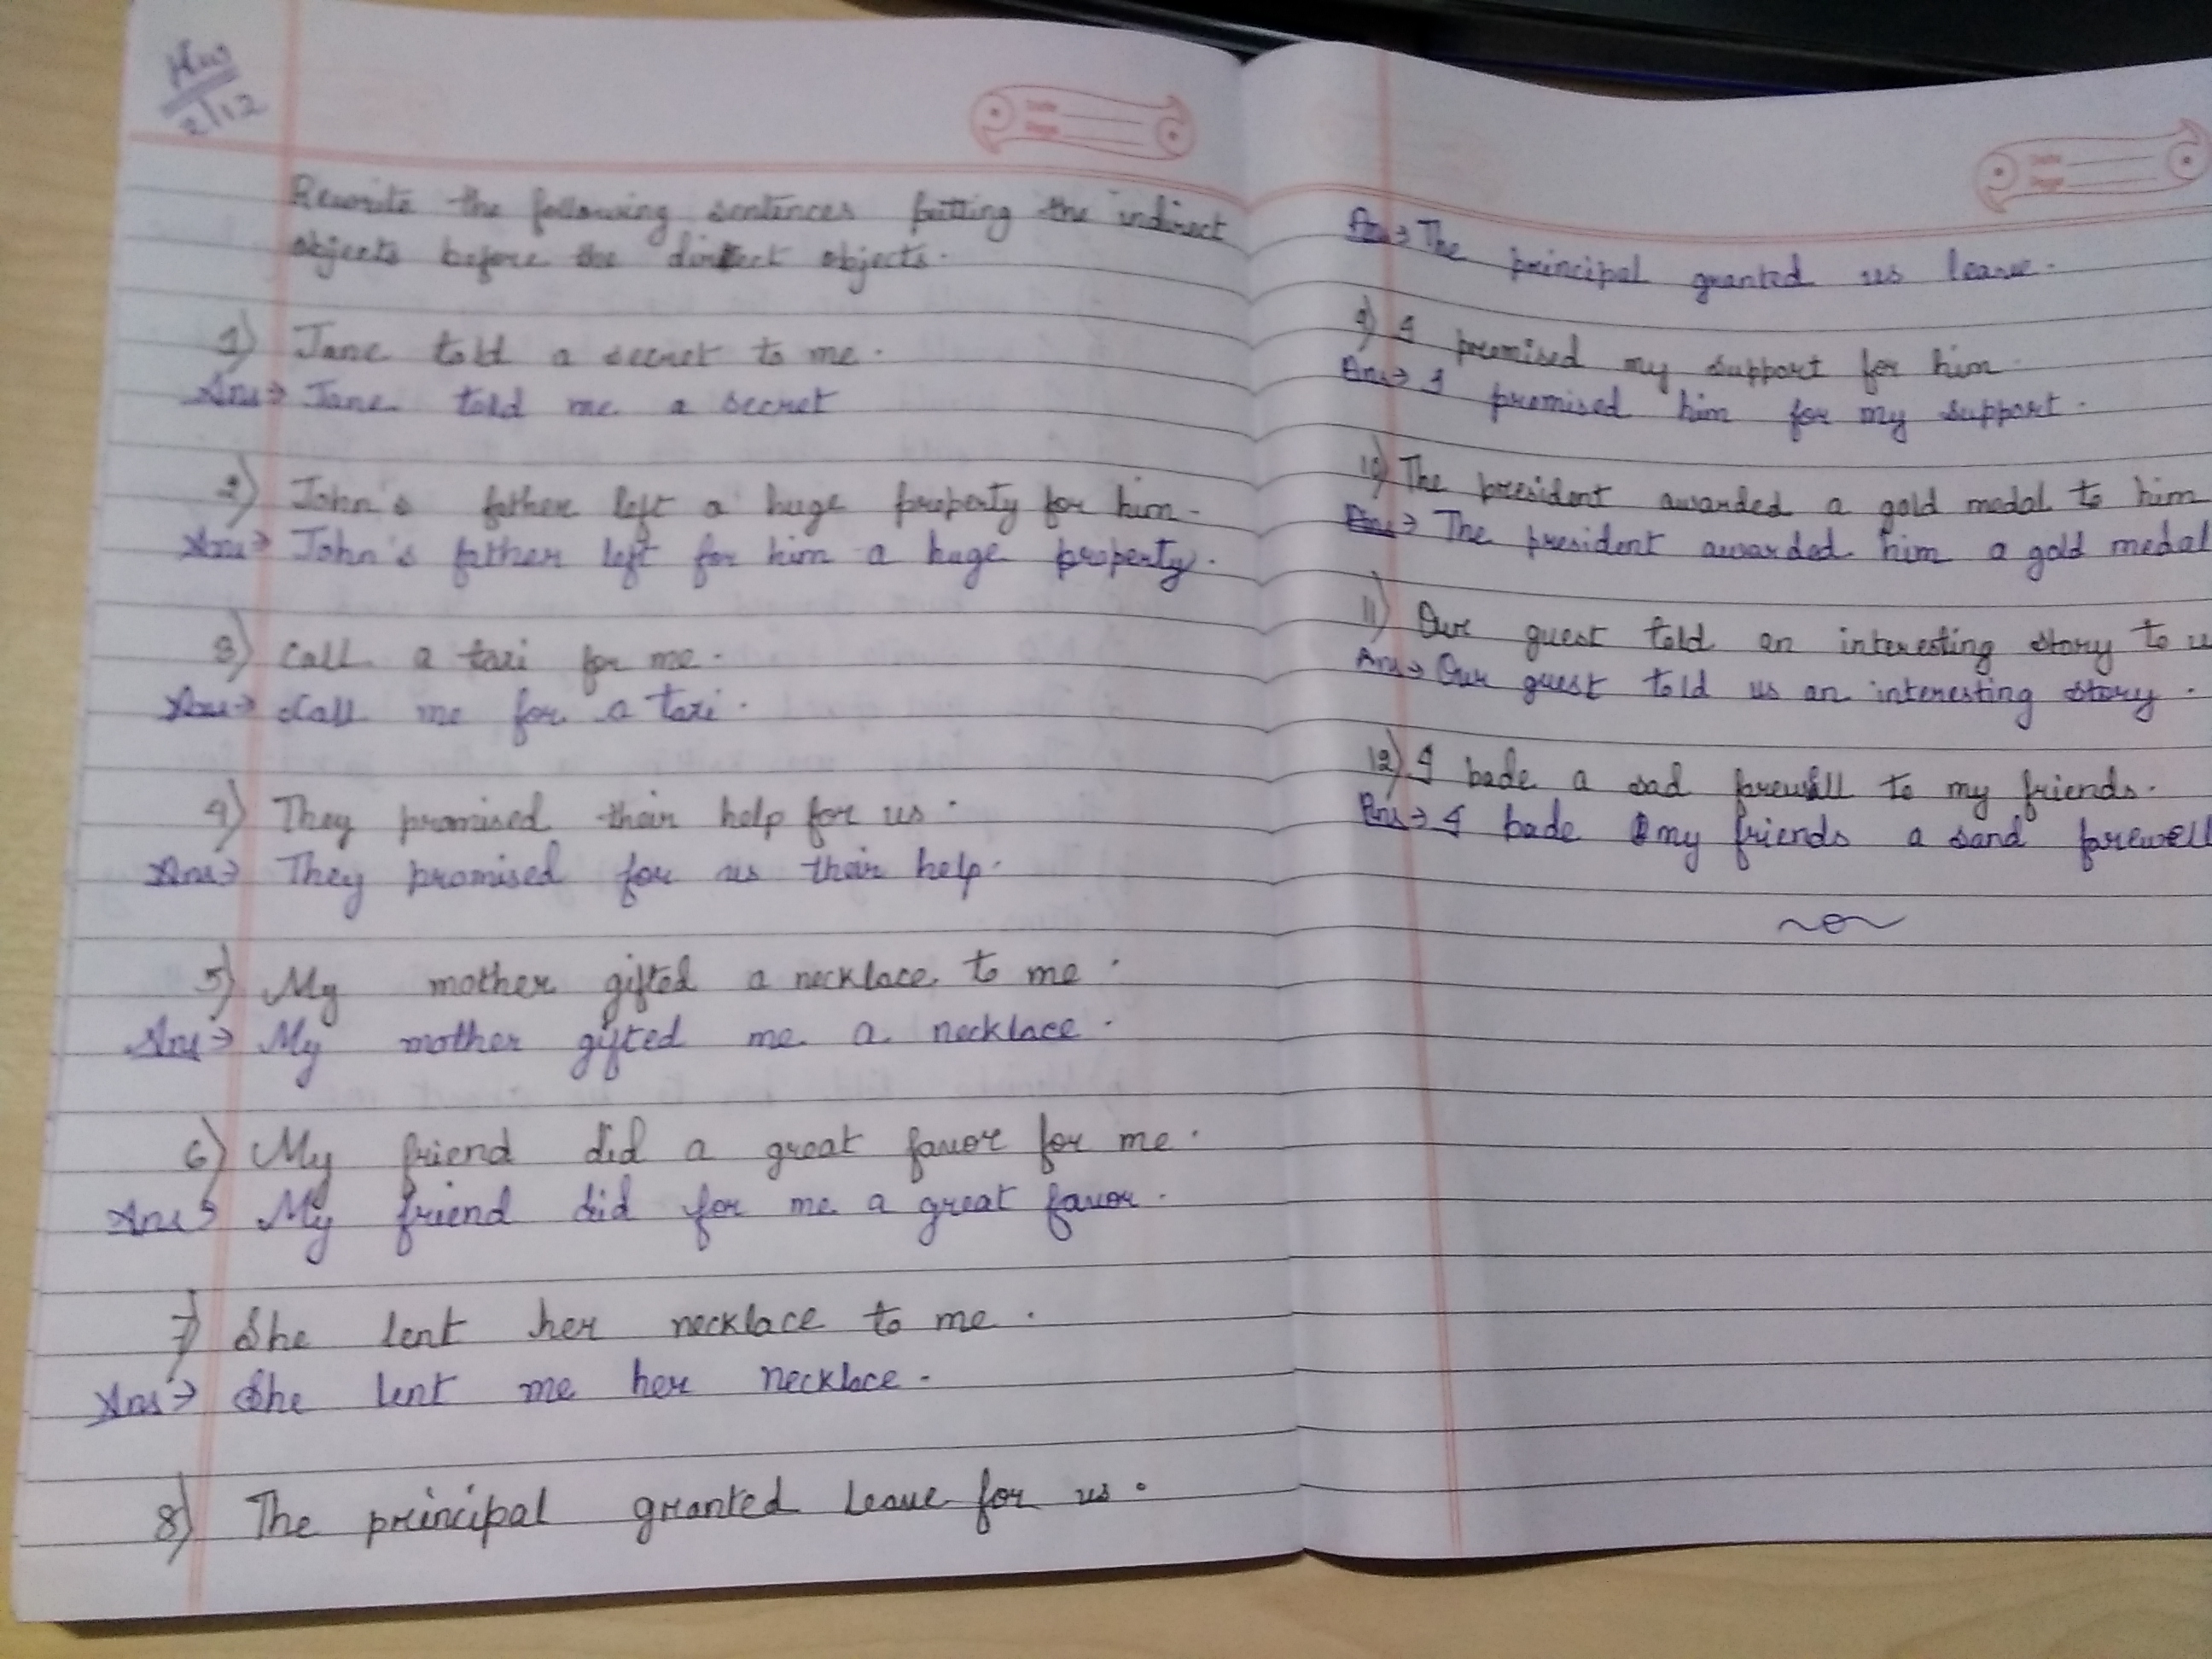 HW
2/12
Date
Page
Rewrite the following sentences putting the indirect
objects before the direct objects.
1) Jane told a secret to me.
Ans→ Jane told me a secret
2) John's father left a huge property for him.
Ans→ John's father left for him a huge property.
3) Call a taxi for me.
Ans→ Call me for a taxi.
4) They promised their help for us.
Ans→ They promised for us their help.
5) My mother gifted a necklace to me.
Ans→ My mother gifted me a necklace.
6) My friend did a great favor for me.
Ans→ My friend did for me a great favor.
7) She lent her necklace to me.
Ans→ She lent me her necklace.
8) The principal granted leave for us.
Date
Page
Ans→ The principal granted us leave.
9) I promised my support for him.
Ans→ I promised him for my support.
10) The president awarded a gold medal to him
Ans→ The president awarded him a gold medal
11) Our guest told an interesting story to u
Ans→ Our guest told us an interesting story.
12) I bade a sad farewell to my friends.
Ans→ I bade my friends a sand farewell